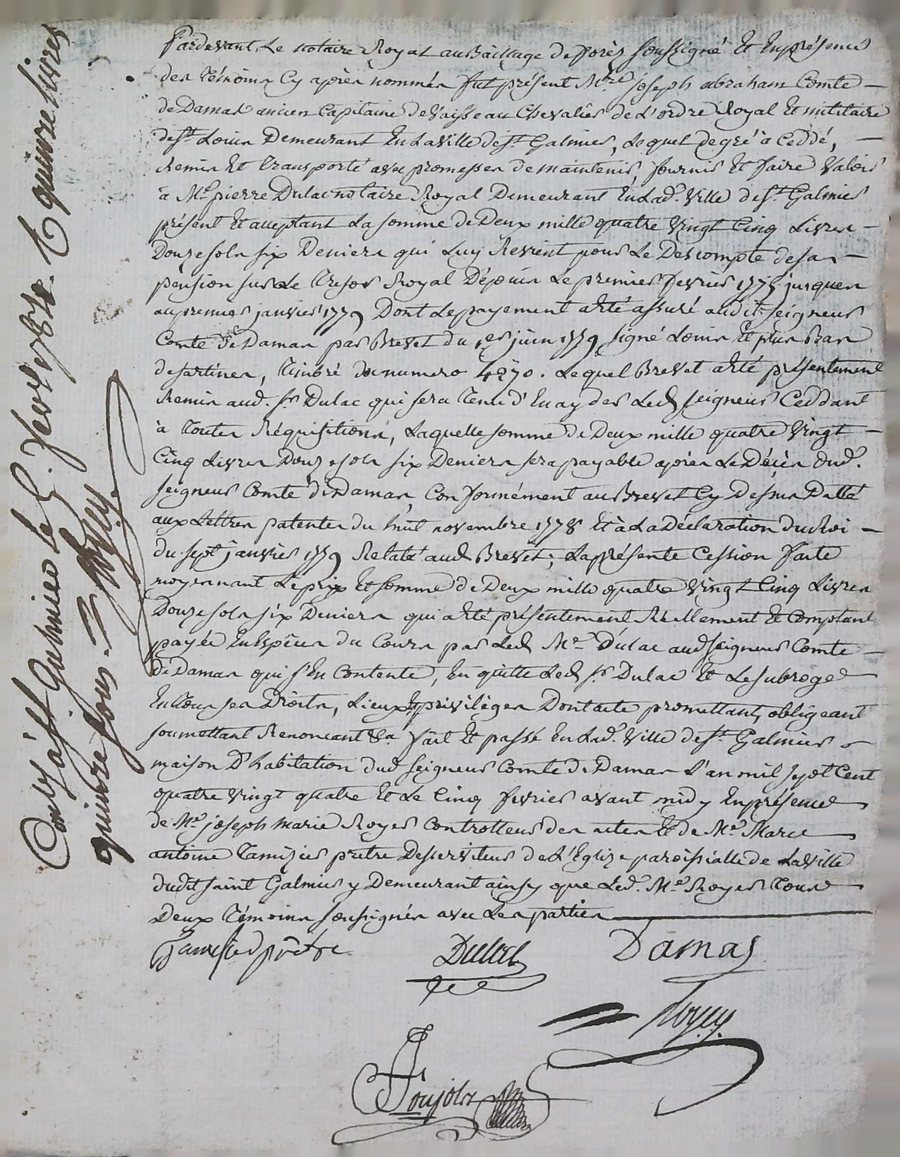 Pardevant Le notaire Royal au Bailliage de forés soussigné Et En présence
des témoins Cy après nommés fut présent Mre joseph abraham Comte
de Damas ancien Capitaine de Vaisseau Chevalier de L'ordre Royal Et militaire
de st. Louis Demeurant En La ville de st. Galmier, Lequel de gré à Ceddé,
Remis Et transporté avec promesse de maintenir, fournir Et faire Valoir
à Me. pierre Dulac notaire Royal Demeurant En Lad. Ville de st. Galmier
présent Et acceptant La somme de Deux mille quatre Vingt Cinq Livres
Douze sols six Deniers qui Luy Revient pour Le Descompte de sa
pension sur Le tresor Royal Dépuis Le premier fevrier 1775 jusques
au premier janvier 1779 Dont Le payement a été assuré audit seigneur
Comte de Damas par Brevet du 1er. juin 1779, signé Louis Et plus Bas
de sartines, timbré du numero 4970. Lequel Brevet a été présentement
Remis aud. sr. Dulac qui sera tenu d'En ayder Led. seigneur Ceddant
à toutes Réquisitions, Laquelle somme de Deux mille quatre Vingt
Cinq Livres Douze sols six Deniers sera payable après Le Décès dud.
seigneur Comte de Damas Conformément au Brevet Cy Dessus Datté
aux Lettres patentes du huit novembre 1778 Et à La Déclaration du Roi
du sept janvier 1779 Relaté aud. Brevet; La présente Cession faite
moyennant Le prix Et somme de Deux mille quatre Vingt Cinq Livres
Douze sols six Deniers qui a été présentement Réellement Et Comptant
payée En Espèces du Cours par Led. Me. Dulac aud. seigneur Comte
de Damas qui s'En Contente, En quitte Led. sr. Dulac Et Le subroge
En tous ses Droits, Lieux Et privilèges Dont acte promettant, obligeant
soumettant Renonçant &a. fait Et passé En Lad. Ville de st. Galmier
maison D'habitation dud. seigneur Comte de Damas L'an mil sept Cent
quatre Vingt quatre Et Le Cinq fevrier avant midy En présence
de Me. joseph marie Royer Controlleur des actes Et de Me. Marc
antoine Tamisier prêtre Desserviteur de L'Eglize paroissialle de La ville
dudit saint Galmier y Demeurant ainsy que Led. Me. Royer tous
Deux témoins soussignés avec Les parties
Tamisier prêtre Dulac Damas
Royer
Foujols
Contlé à st. Galmier le 5 fevr 1784. R quinze livres
quinze sous. Royer